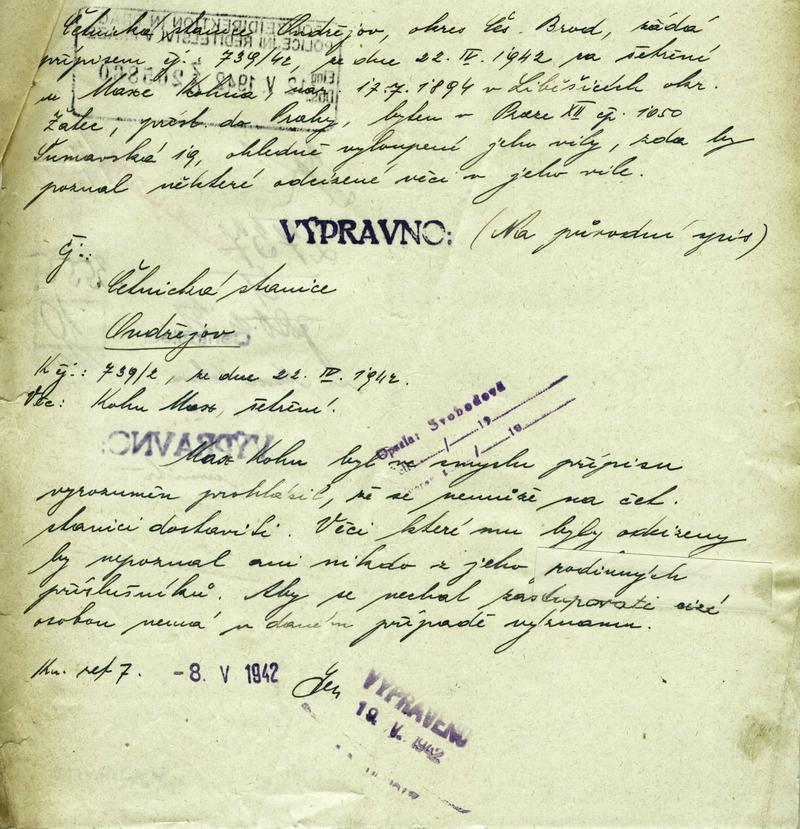 Četnická stanice Ondřejov, okres Čes. Brod, žádá
přípisem čj. 739/42, ze dne 22. IV. 1942 za šetření
u Maxe Kohna, nar. 17.7.1894 v Liběšicích okr.
Žatec, přísl. do Prahy, bytem v Praze XII čp. 1050
Šumavská 19, ohledně vyloupení jeho vily, zda by
poznal některé odcizené věci v jeho vile.
VÝPRAVNO: (Na původní spis)
čj.:
Četnická stanice
Ondřejov
K čj.: 739/2, ze dne 22. IV. 1942.
Věc: Kohn Max, šetření.
Opsala: Svobodová
19
19
VÝPRAVNO:
Max Kohn byl ve smyslu přípisu
vyrozuměn prohlásil, že se nemůže na čet.
stanici dostaviti. Věci které mu byly odcizeny
by nepoznal ani nikdo z jeho rodinných
příslušníků. Aby se nechal zastupovati cizí
osobou nemá v daném případě významu.
-8. V 1942
VYPRAVENO
19. V. 1942